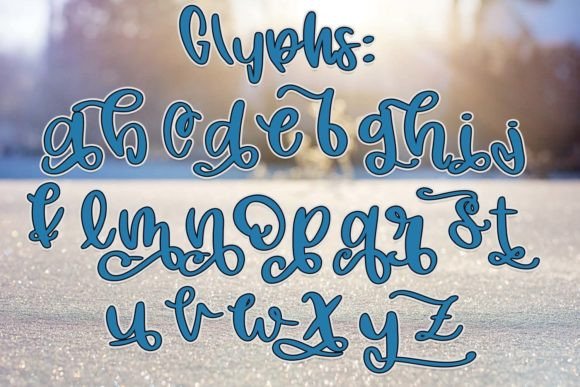 Glyphs:
a b c d e f g h i j
k l m n o p q r s t
u v w x y z